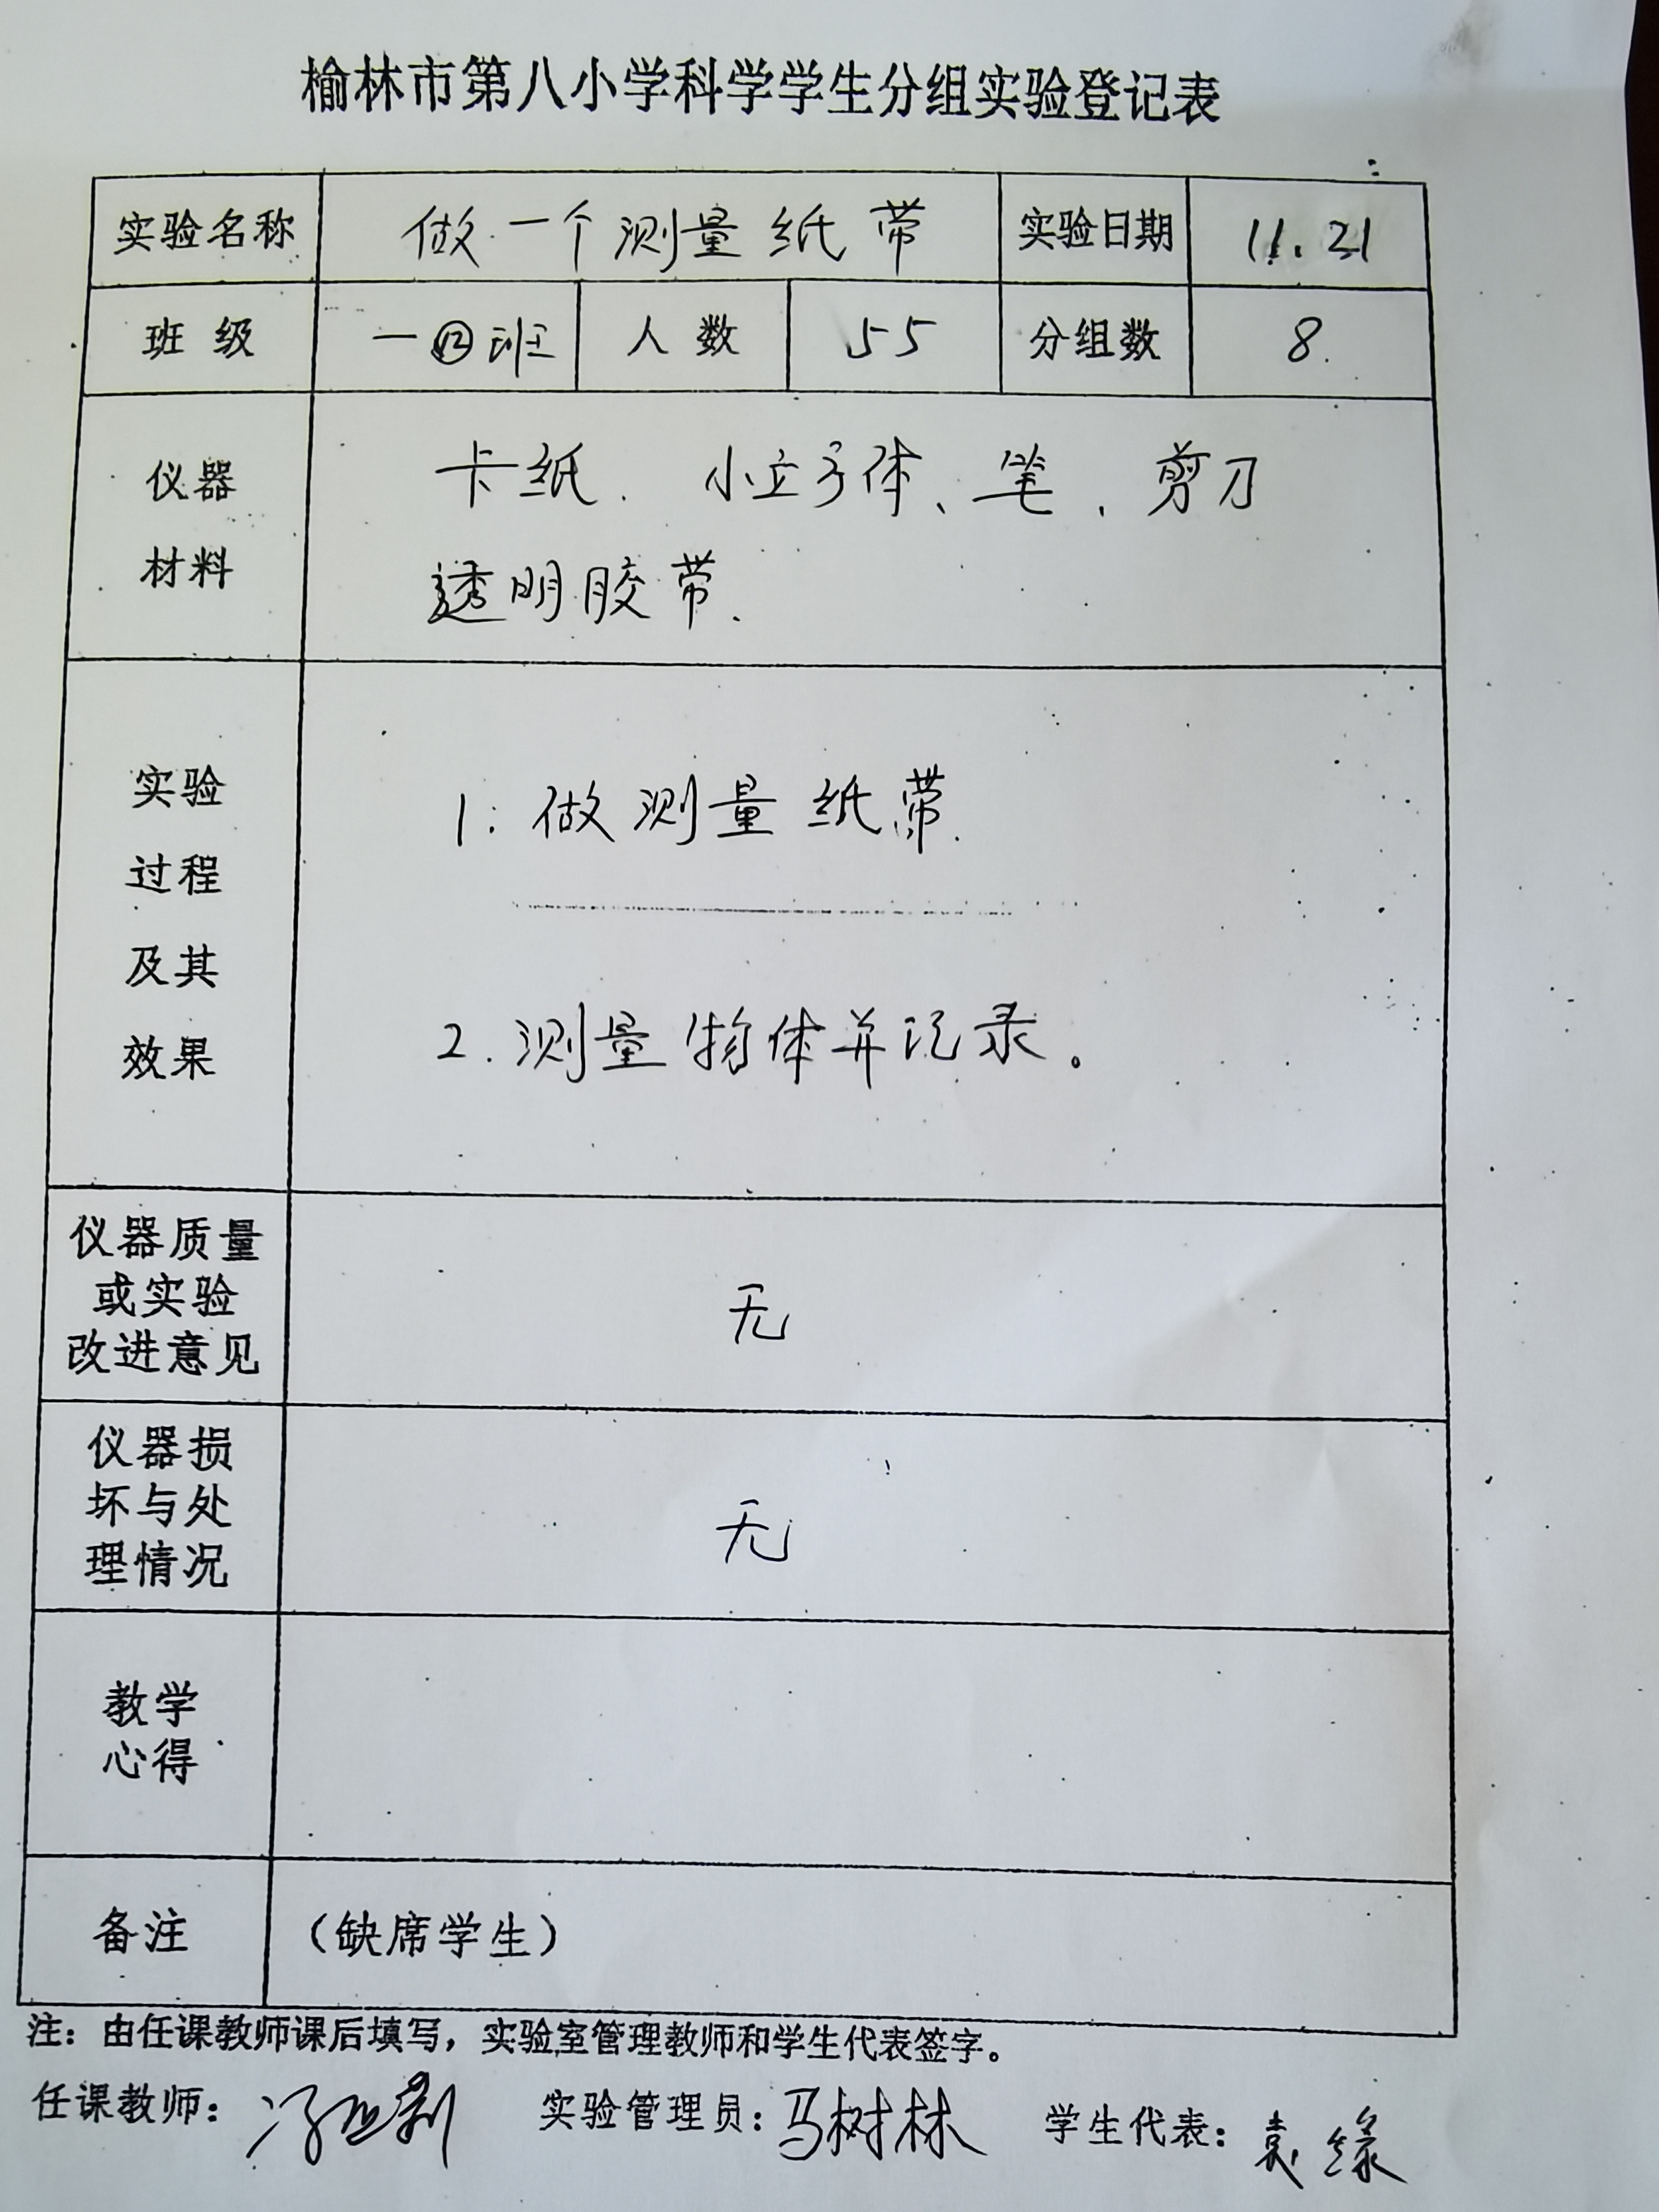 榆林市第八小学科学学生分组实验登记表
实验名称 做一个测量纸带 实验日期 11.21
班级 一⑫班 人数 55 分组数 8.
仪器
材料
卡纸. 小立方体、笔、剪刀
透明胶带.
实验
过程
及其
效果
1. 做测量纸带.
2. 测量物体并记录。
仪器质量
或实验
改进意见
无
仪器损
坏与处
理情况
无
教学
心得
备注 (缺席学生)
注：由任课教师课后填写，实验室管理教师和学生代表签字。
任课教师： 实验管理员：马树林 学生代表：袁缘